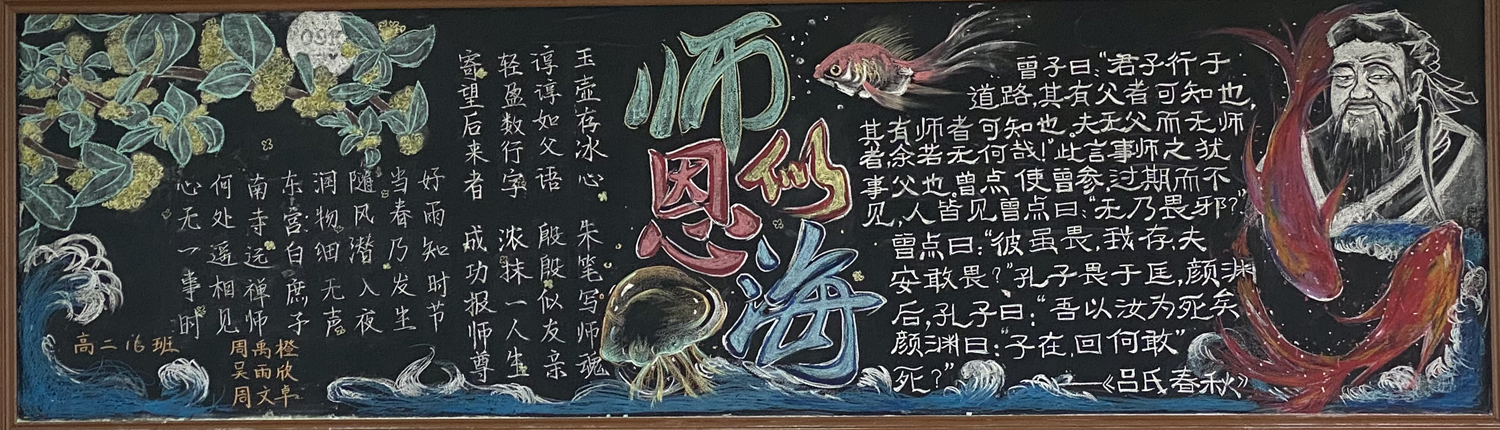 师恩似海
曾子曰:“君子行于
道路,其有父者可知也,
其有师者可知也。夫无父而无师
者,余若无何哉!”此言事师之犹
事父也。曾点使曾参,过期而不
见,人皆见曾点曰:“无乃畏邪?”
曾点曰:“彼虽畏,我存,夫
安敢畏?”孔子畏于匡,颜渊
后,孔子曰:“吾以汝为死矣
颜渊曰:“子在,回何敢”
死?”——《吕氏春秋》
玉壶存冰心 朱笔写师魂
谆谆如父语 殷殷似友亲
轻盈数行字 浓抹一人生
寄望后来者 成功报师尊
好雨知时节
当春乃发生
随风潜入夜
润物细无声
东宫白庶子
南寺远禅师
何处遥相见
心无一事时
高二16班
周禹橙
吴雨欣
周文卓